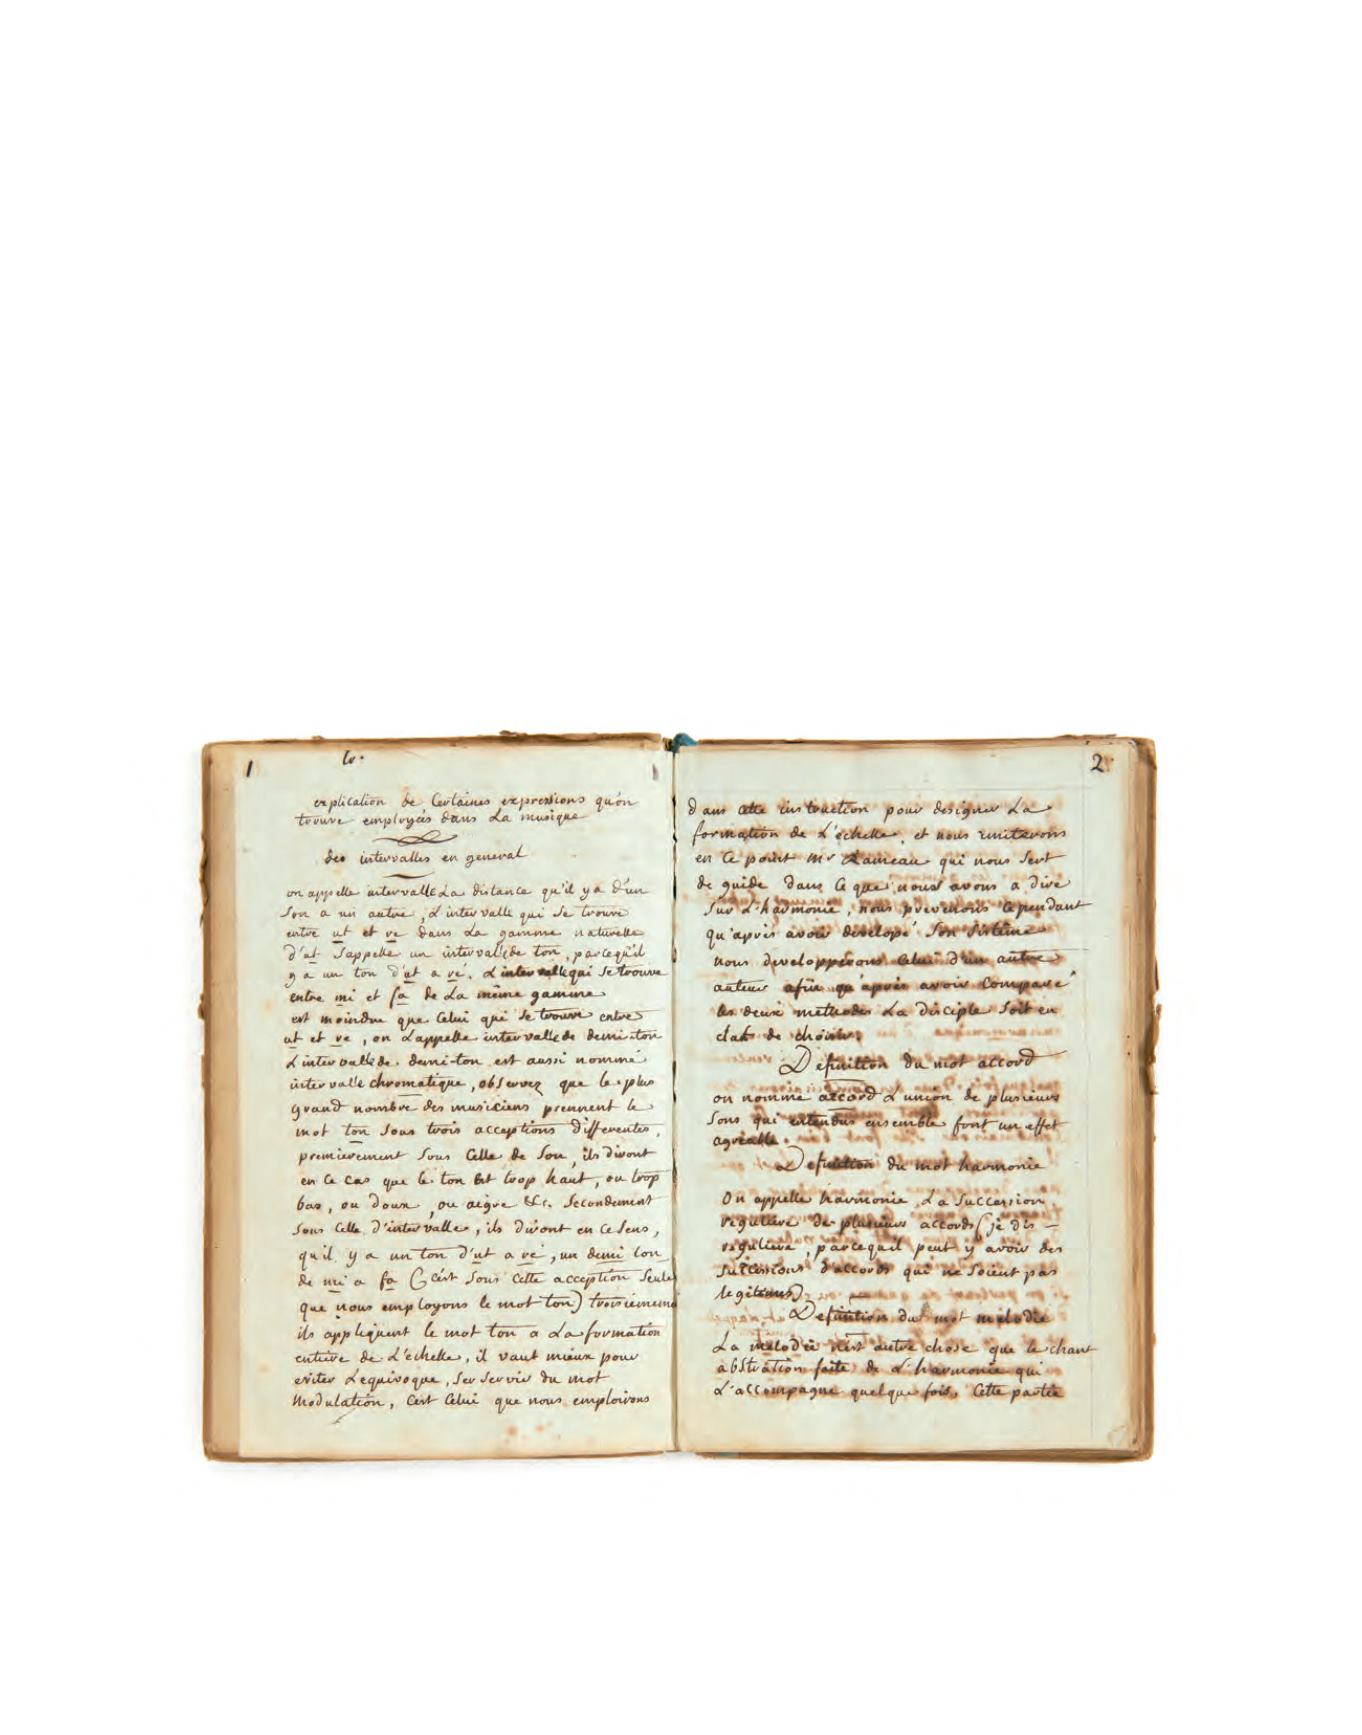 1
explication de Certaines expressions qu'on
trouve employées dans La musique
des intervalles en general
on appelle intervalle La distance qu'il y a d'un
son a un autre, L'intervalle qui se trouve
entre ut et re dans La gamme naturelle
d'ut s'appelle un intervalle de ton, parcequ'il
y a un ton d'ut a ré. L'intervalle qui se trouve
entre mi et fa de La même gamme
est moindre que Celui qui se trouve entre
ut et re, on L'appelle intervalle de demi-ton
L'intervalle de demi-ton est aussi nommé
intervalle chromatique, observez que le plus
grand nombre des musiciens prennent le
mot ton sous trois acceptions differentes,
premierement sous Celle de son, ils diront
en ce cas que le ton est trop haut, ou trop
bas, ou doux, ou aigre &c. secondement
sous Celle d'intervalle, ils diront en ce sens,
qu'il y a un ton d'ut a ré, un demi ton
de mi a fa (c'est sous cette acception seule
que nous employons le mot ton) troisiemement
ils appliquent le mot ton a La formation
entiere de L'echelle, il vaut mieux pour
eviter L'equivoque, se servir du mot
Modulation, C'est Celui que nous emploirons
2
dans cette instruction pour designer La
formation de L'echelle, et nous imiterons
en Ce point Mr Rameau qui nous sert
de guide dans Ce que nous avons a dire
sur L'harmonie, nous prevenons Cependant
qu'après avoir developé son sistême
nous developperons Celui d'un autre
auteur afin qu'après avoir Comparé
les deux methodes La disciple soit en
etat de choisir.
Definition du mot accord
on nomme accord L'union de plusieurs
sons qui entendus ensemble font un effet
agreable.
Definition du mot harmonie
On appelle harmonie, La succession
reguliere de plusieurs accords (je dis
reguliere, parcequ'il peut y avoir des
successions d'accords qui ne soient pas
legitimes)
Definition du mot melodie
La melodie n'est autre chose que le chant
abstration faite de L'harmonie qui
L'accompagne quelque fois, Cette partie